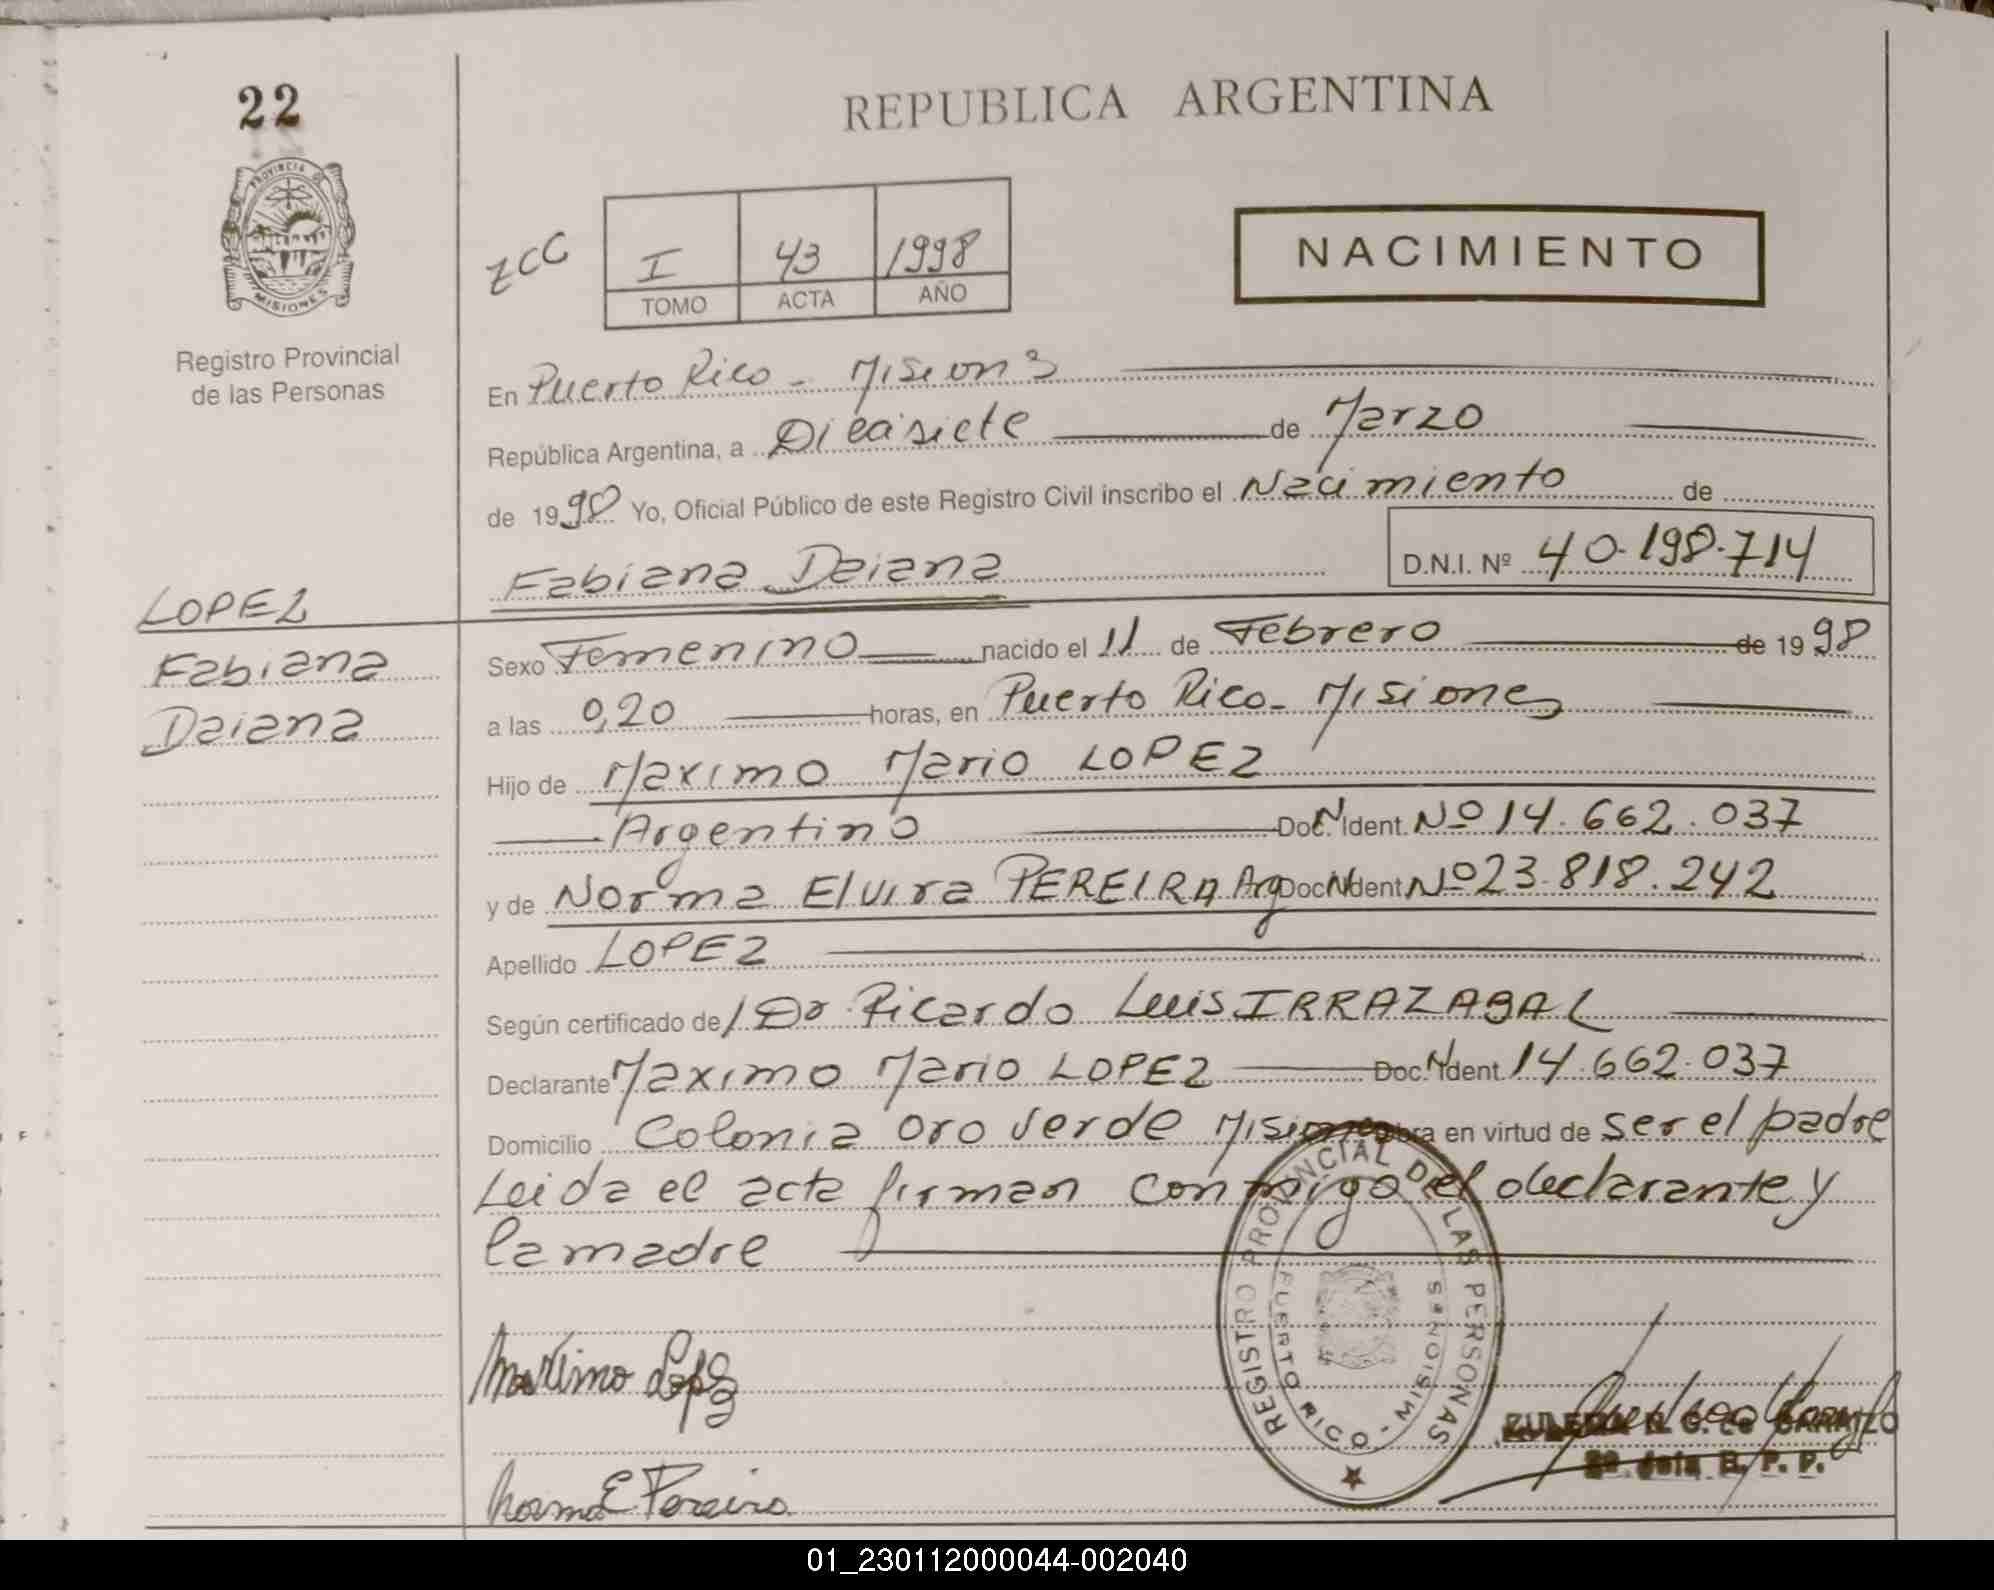 22
REPUBLICA ARGENTINA
PROVINCIA DE
MISIONES
Registro Provincial
de las Personas
ZCC
I 43 1998
TOMO ACTA AÑO
NACIMIENTO
En Puerto Rico - Misiones
República Argentina, a Diecisiete de Marzo
de 1998 Yo, Oficial Público de este Registro Civil inscribo el Nacimiento de
Fabiana Daiana D.N.I. Nº 40.198.714
LOPEZ
Fabiana
Daiana
Sexo Femenino nacido el 11 de Febrero de 1998
a las 0,20 horas, en Puerto Rico - Misiones
Hijo de Maximo Mario LOPEZ
Argentino Doc. N. Ident. Nº 14.662.037
y de Norma Elvira PEREIRA Arg Doc. N. Ident. Nº 23.818.242
Apellido LOPEZ
Según certificado de Dr. Ricardo Luis IRRAZABAL
Declarante Maximo Mario LOPEZ Doc. N. Ident. 14.662.037
Domicilio Colonia Oro Verde Misiones obra en virtud de ser el padre
Leida el acta firman conmigo el declarante y
la madre
REGISTRO PROVINCIAL DE LAS PERSONAS
PUERTO RICO - MISIONES
Maximo Lopez
Norma E Pereira
2ª Jefa R. P. P.
01_230112000044-002040